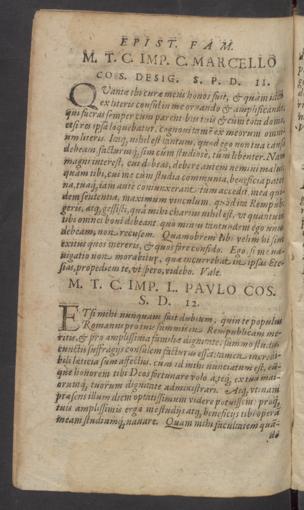 EPIST. FAM.
M. T. C. IMP. C. MARCELLO
COS. DESIG. S. P. D. II.
QVantæ tibi curæ meus honos fuit, & quàm idem
exiteris consul in me ornando & amplificando,
qui fueras semper cum parentibus tuis & cum tota domo,
etsi res ipsa loquebatur, cognoui tamē ex meorum omni-
um literis. Itaq; nihil est tantum, quod ego non tua causa
debeam, facturusq; sim cum studiosè, tum libenter. Nam
magni interest, cui debeas, debere autem nemini malui,
quàm tibi, cui me cum studia communia, beneficia pater-
na, tuaq; iam antè coniunxerant: tum accedit, mea qui-
dem sententia, maximum vinculum, quòd ita Rempub.
geris, atq; gessisti, qua mihi charius nihil est, vt quantum
tibi omnes boni debeant, quo minus tantundem ego vnus
debeam, non recusem. Quamobrem tibi velim hi sint
exitus quos mereris, & quos fore confido. Ego, si me na-
uigatio non morabitur, quæ incurrebat in ipsos Ete-
sias, propediem te, vt spero, videbo. Vale.
M. T. C. IMP. L. PAVLO COS.
S. D. 12.
ETsi mihi nunquam fuit dubium, quin te populus
Romanus pro tuis summis in Rempublicam me-
ritis, & pro amplissima familiæ dignitate, summo studio,
cunctis suffragijs consulem facturus esset: tamen incredi-
bili lætitia sum affectus, cum id mihi nuntiatum est, eum-
que honorem tibi Deos fortunare volo, atq; ex tua mai-
orumq; tuorum dignitate administrari. Atq; vtinam
præsens illum diem optatissimum videre potuissem: proq;
tuis amplissimis erga me studijs atq; beneficijs tibi operā
meam studiumq; nauare. Quam mihi facultatem quã-
do